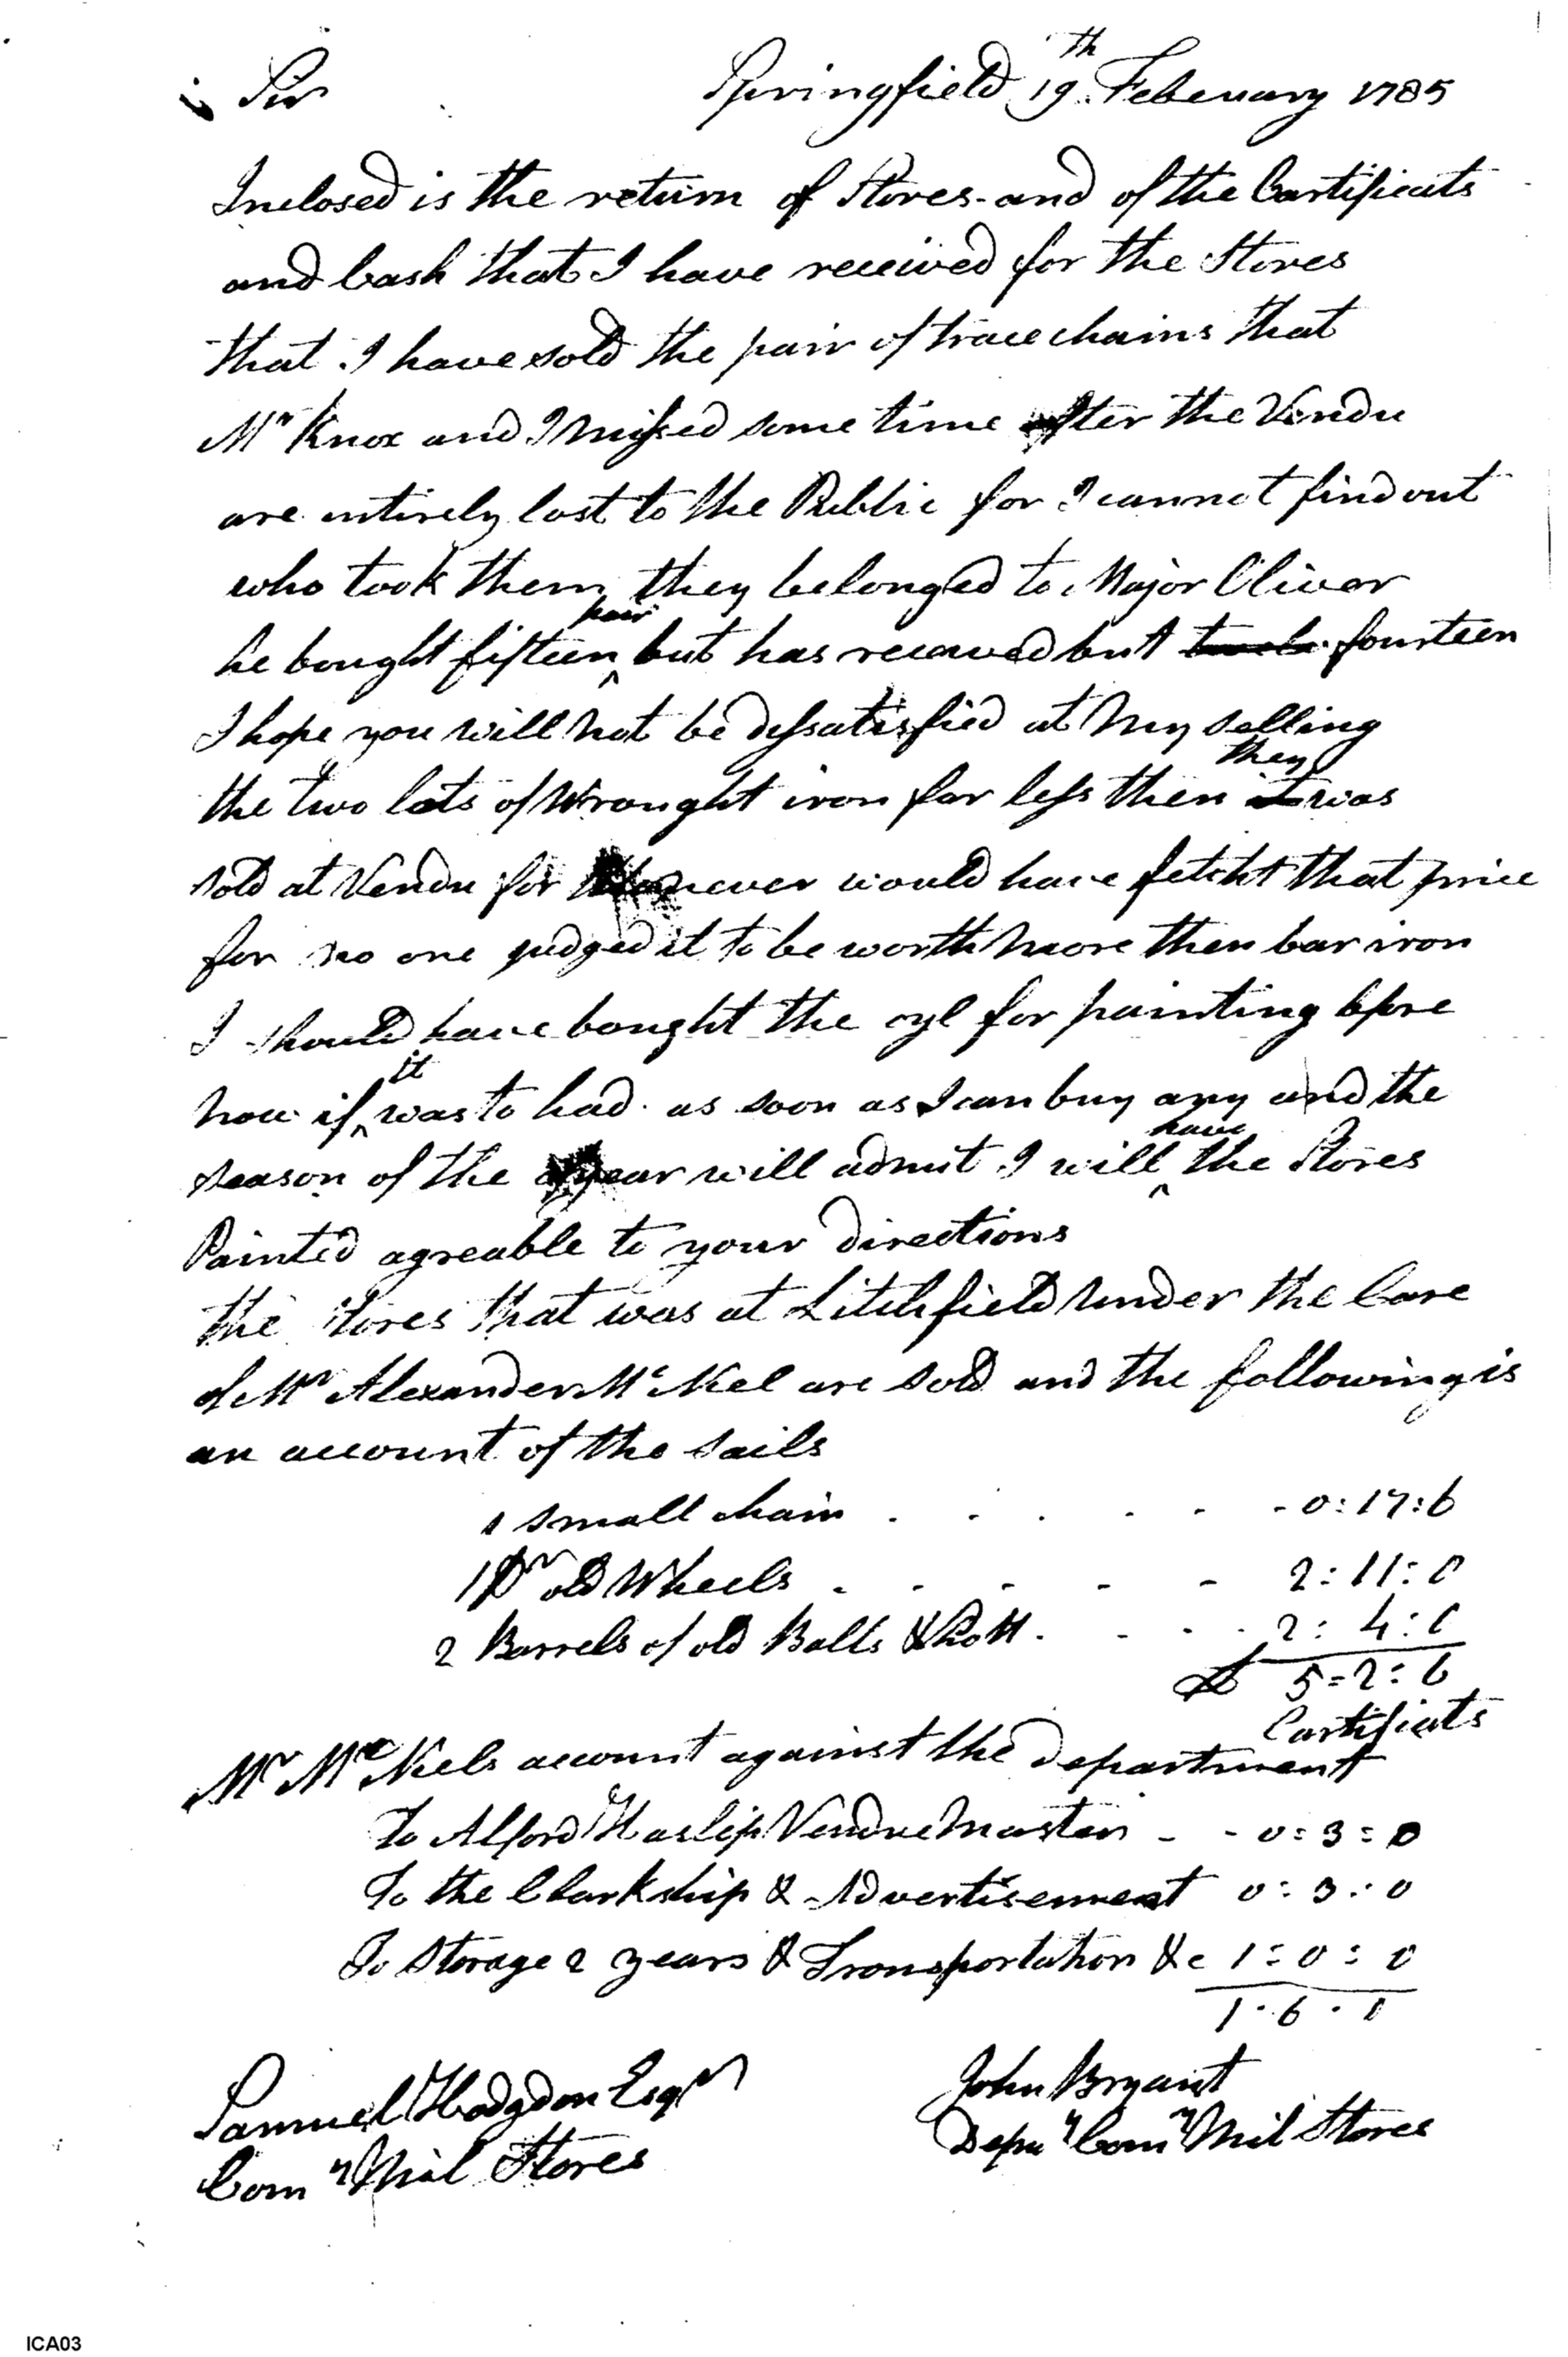 Sir Springfield 19th February 1785
Inclosed is the return of Stores and of the Cartificats
and Cash that I have received for the Stores
that I have sold the pair of trace chains that
Mr Knox and I missed some time after the Vendu
are intirely lost to the Public for I cannot find out
who took them they belonged to Major Oliver
he bought fifteen pair but has received but fourteen
I hope you will not be dissatisfied at my selling
the two lots of Wrought iron for less then they was
sold at Vendu for never would have fetcht that price
for no one judged it to be worth more then bar iron
I should have bought the oyl for painting bfore
now if it was to had as soon as I can buy any and the
season of the year will admit I will have the Stores
Painted agreable to your directions
the Stores that was at Litchfield under the Care
of Mr Alexander Mc Niel are sold and the following is
an account of the sails
1 small chain - 0:17:6
1 Pr old Wheels - 2:11:0
2 Barrels of old Balls & Shott - 2:4:0
£ 5=2:6
Cartificats
Mr Mc Niels account against the department
To Alford Haslip Vendue Master - - 0=3=0
To the Clarkship & Advertisement 0:3:0
To Storage 2 years & Transportation &c 1=0=0
1·6·0
Samuel Hodgdon Esqr John Bryant
Comy Mil Stores Depuy Comy Mil Stores
ICA03